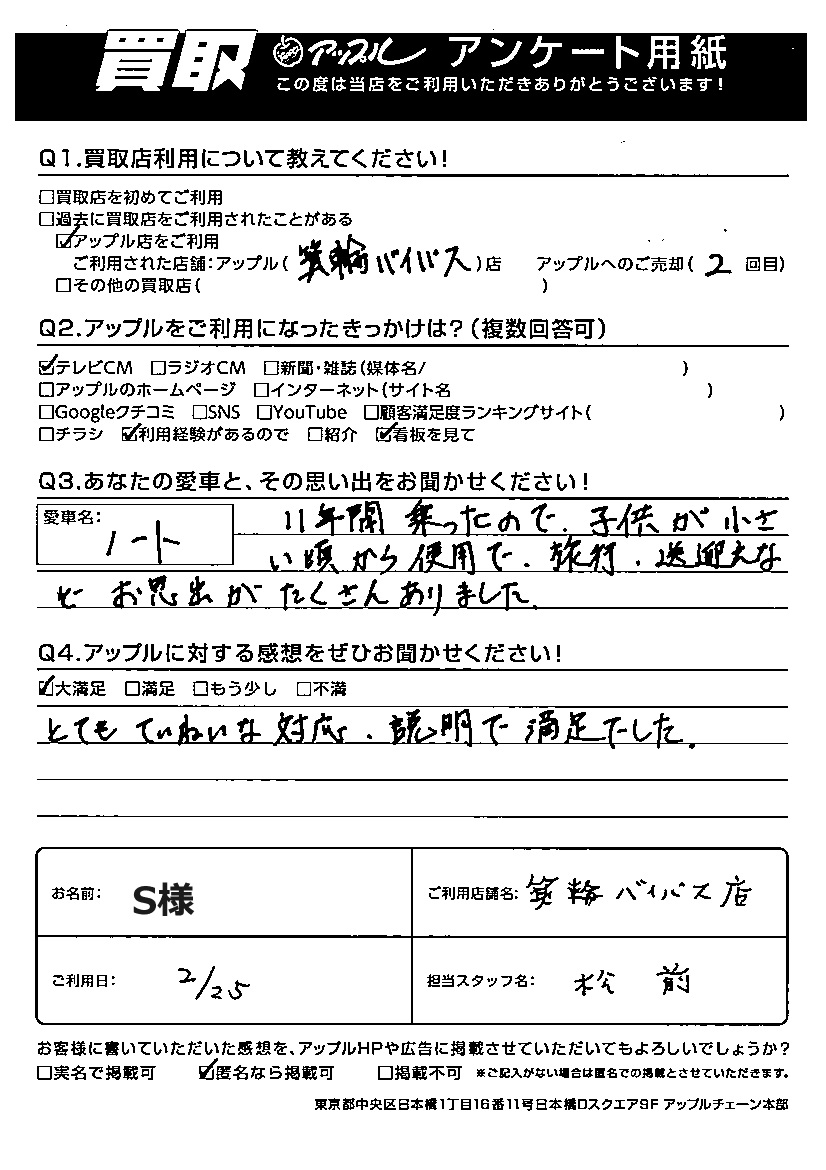 買取 アップル アンケート用紙
この度は当店をご利用いただきありがとうございます!
Q1.買取店利用について教えてください!
□買取店を初めてご利用
□過去に買取店をご利用されたことがある
☑アップル店をご利用
ご利用された店舗:アップル(箕輪バイパス)店 アップルへのご売却(2回目)
□その他の買取店( )
Q2.アップルをご利用になったきっかけは?(複数回答可)
☑テレビCM □ラジオCM □新聞・雑誌(媒体名/ )
□アップルのホームページ □インターネット(サイト名 )
□Googleクチコミ □SNS □YouTube □顧客満足度ランキングサイト( )
□チラシ ☑利用経験があるので □紹介 ☑看板を見て
Q3.あなたの愛車と、その思い出をお聞かせください!
愛車名: ノート
11年間乗ったので、子供が小さ
い頃から使用で、旅行、送迎えな
ど お思出がたくさんありました。
Q4.アップルに対する感想をぜひお聞かせください!
☑大満足 □満足 □もう少し □不満
とてもていねいな対応、説明で満足でした。
お名前: S様 ご利用店舗名: 箕輪バイパス店
ご利用日: 2/25 担当スタッフ名: 松前
お客様に書いていただいた感想を、アップルHPや広告に掲載させていただいてもよろしいでしょうか?
□実名で掲載可 ☑匿名なら掲載可 □掲載不可 ※ご記入がない場合は匿名での掲載とさせていただきます。
東京都中央区日本橋1丁目16番11号日本橋Dスクエア9F アップルチェーン本部